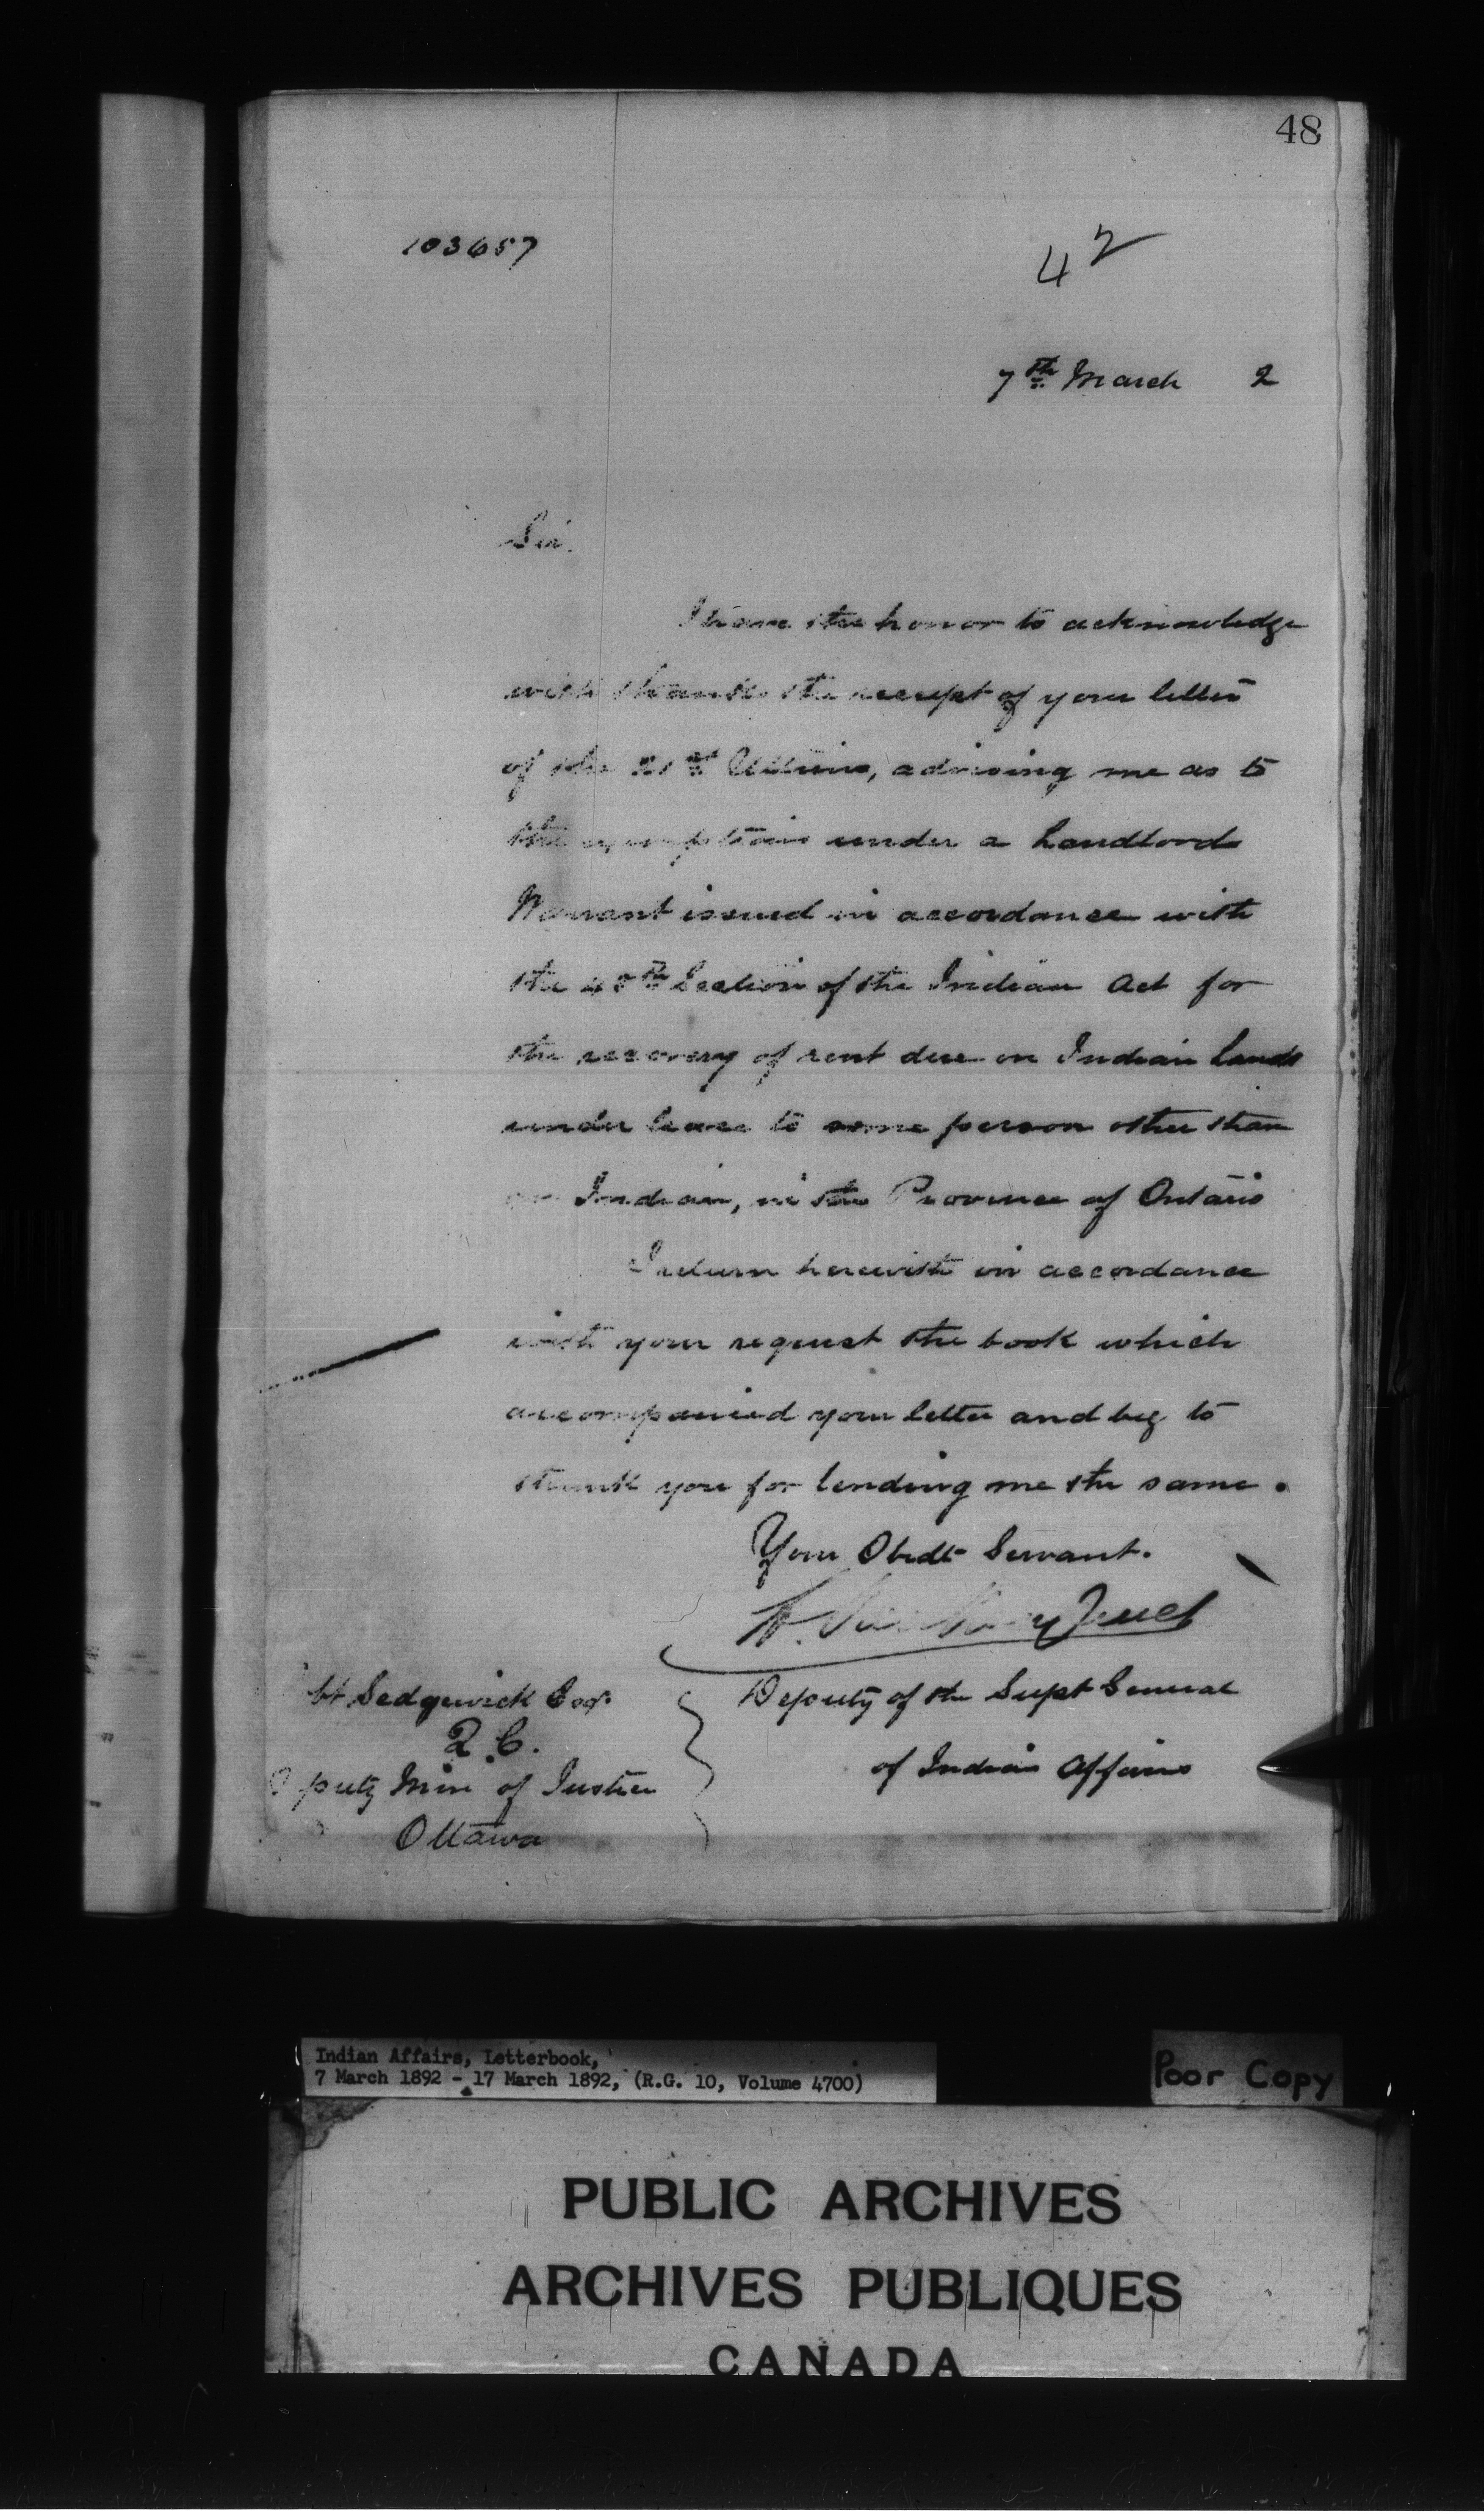 48
103657
42
7th March 2
Sir.
I have the honor to acknowledge
with thanks the receipt of your letter
of the 21st Ultimo, advising me as to
the exemptions under a Landlords
Warrant issued in accordance with
the Section of the Indian Act for
the recovery of rent due on Indian lands
under lease to some person other than
an Indian, in the Province of Ontario
I return herewith in accordance
with your request the book which
accompanied your letter and beg to
thank you for lending me the same.
Your Obedt Servant.
L. Vankoughnet
Deputy of the Supt General
of Indian Affairs
bt. Sedgewick Esqr.
Q.C.
Deputy Min of Justice
Ottawa
Indian Affairs, Letterbook,
7 March 1892 - 17 March 1892, (R.G. 10, Volume 4700)
Poor Copy
PUBLIC ARCHIVES
ARCHIVES PUBLIQUES
CANADA